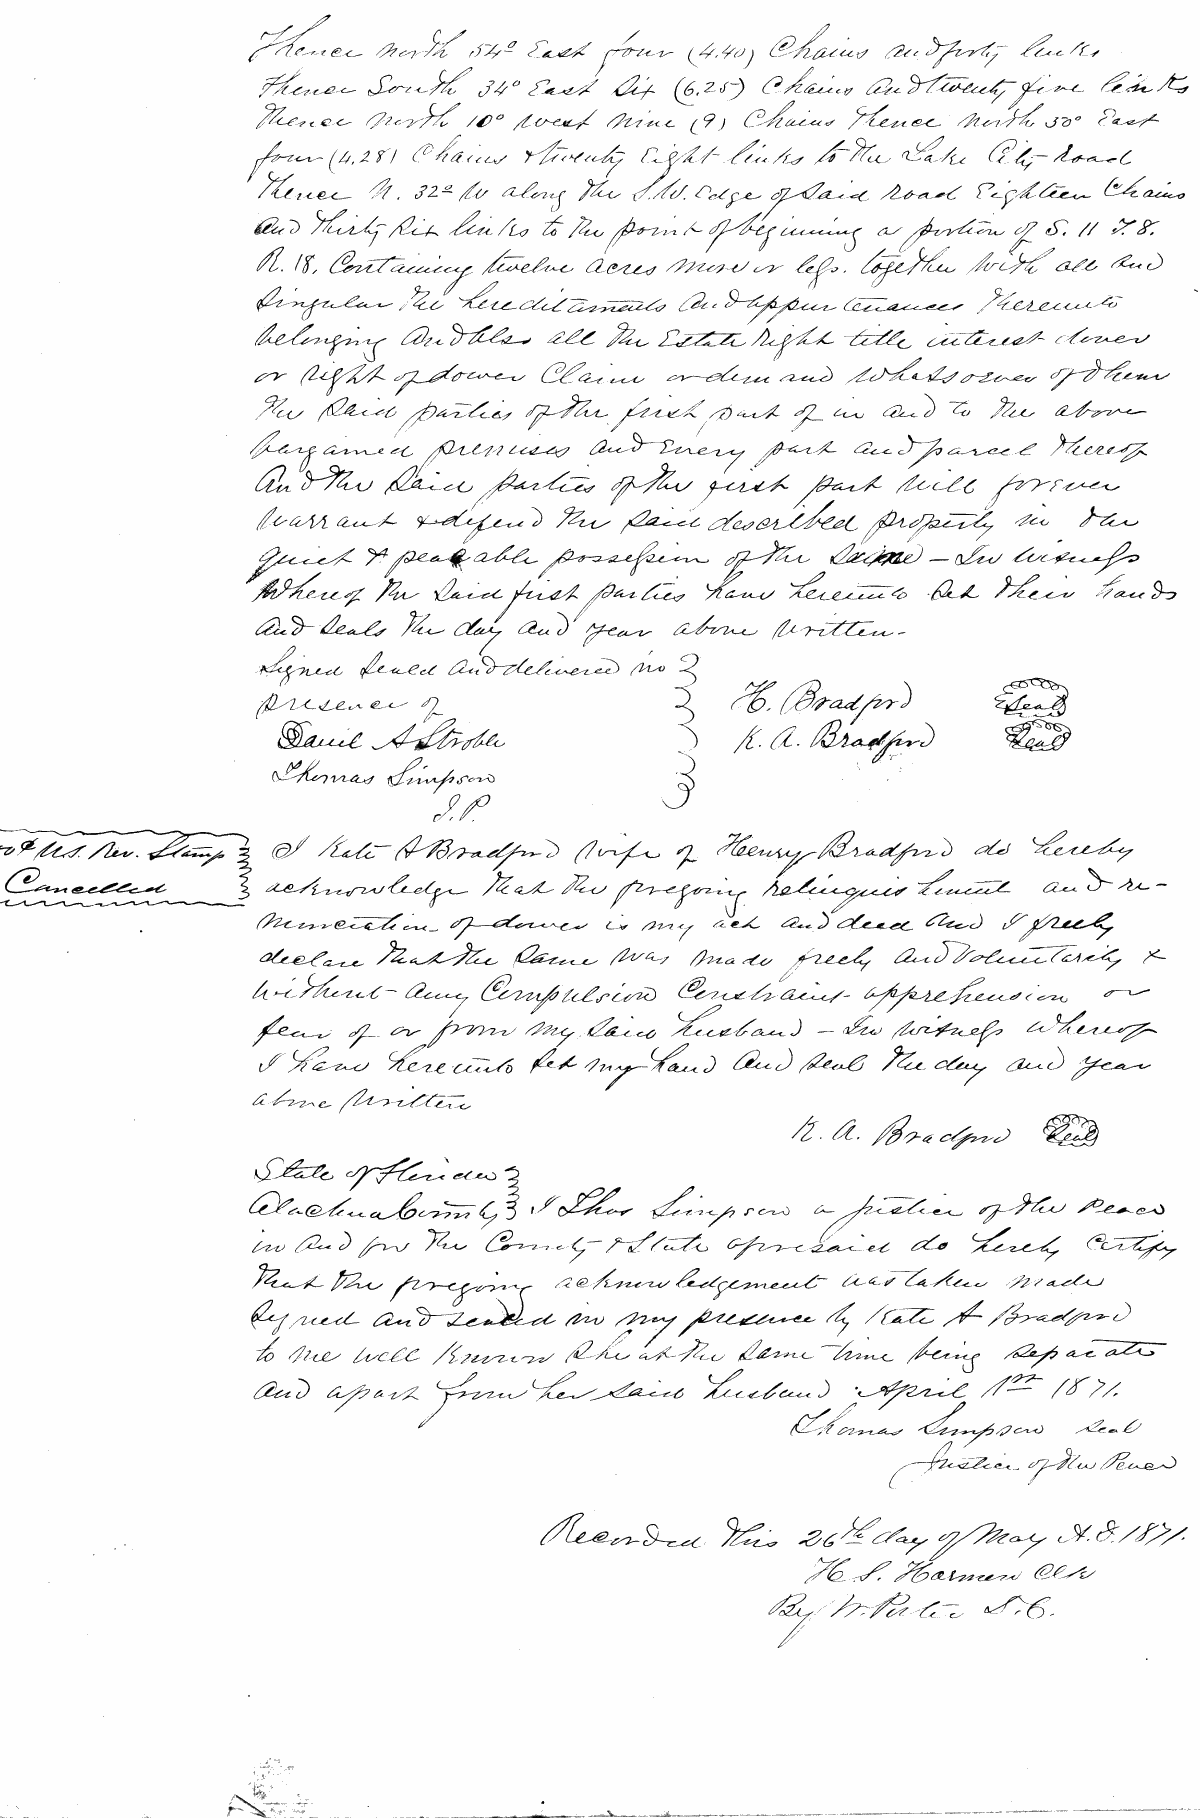 Thence north 54° East four (4.40) Chains and forty links
Thence South 34° East Six (6.25) Chains and twenty five links
Thence north 10° west nine (9) Chains Thence north 50° East
four (4.28) Chains & twenty Eight links to the Lake City Road
Thence N. 32° W along the S.W. Edge of Said Road Eighteen Chains
and Thirty Six links to the point of beginning a portion of S. 11 T. 8.
R. 18. Containing twelve acres more or less. together with all and
Singular the hereditaments and appurtenances Thereunto
belonging and also all the Estate right title interest dower
or right of dower Claim or demand Whatsoever of them
the Said parties of the first part of in and to the above
bargained premises and Every part and parcel thereof
And the Said parties of the first part Will forever
Warrant & defend the Said described property in the
quiet & peacable possession of the Same – In Witness
Whereof the Said first parties have hereunto Set their hands
and Seals the day and year above Written-
Signed Sealed and delivered in
presence of
H. Bradford Seal
Daniel A Stroble K. A. Bradford Seal
Thomas Simpson
J. P.
U.S. Rev. Stamp
Cancelled
I Kate A Bradford Wife of Henry Bradford do hereby
acknowledge that the foregoing relinquishment and re-
nunciation of dower is my act and deed and I freely
declare that the Same was made freely and Voluntarily &
Without any Compulsion Constraint apprehension or
fear of or from my Said husband – In Witness Whereof
I have hereunto Set my hand and seal the day and year
above Written
K. A. Bradford Seal
State of Florida
Alachua County I Thos Simpson a Justice of the Peace
in and for the County & State aforesaid do hereby Certify
that the foregoing acknowledgement was taken made
Signed and sealed in my presence by Kate A Bradford
to me well Known She at the Same time being separate
and apart from her Said husband April 1st 1871.
Thomas Simpson seal
Justice of the Peace
Recorded this 26th day of May A.D. 1871.
H. S. Harmon Clk
By W. Porter D.C.